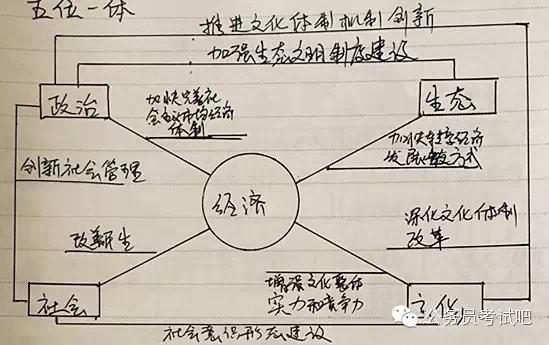 五位一体
推进文化体制机制创新
加强生态文明制度建设
政治
加快完善社
会主义市场经济
体制
生态
加快转变经济
发展方式
创新社会管理
经济
深化文化体制
改革
改善民生
增强文化整体
实力和竞争力
社会
文化
社会意识形态建设
公务员考试吧